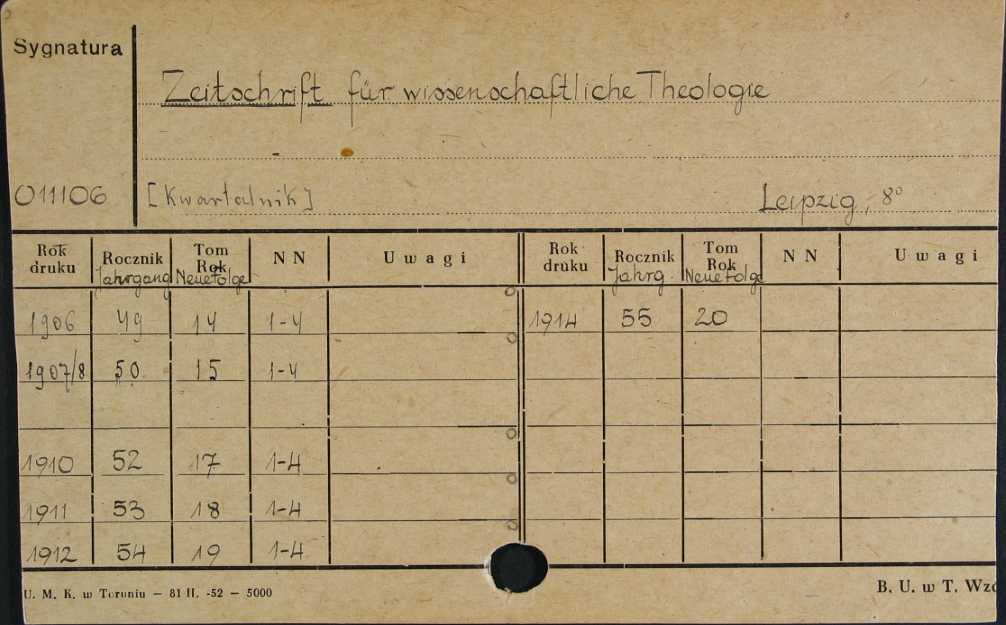 Sygnatura
Zeitschrift für wissenschaftliche Theologie
011106 [Kwartalnik] Leipzig, 8°
Rok druku Rocznik Jahrgang Tom Rok Neue Folge NN Uwagi Rok druku Rocznik Jahrg Tom Rok Neue Folge NN Uwagi
1906 49 14 1-4 1914 55 20
1907/8 50 15 1-4
1910 52 17 1-4
1911 53 18 1-4
1912 54 19 1-4
U. M. K. w Toruniu — 81 II. -52 — 5000 B. U. w T. Wzó